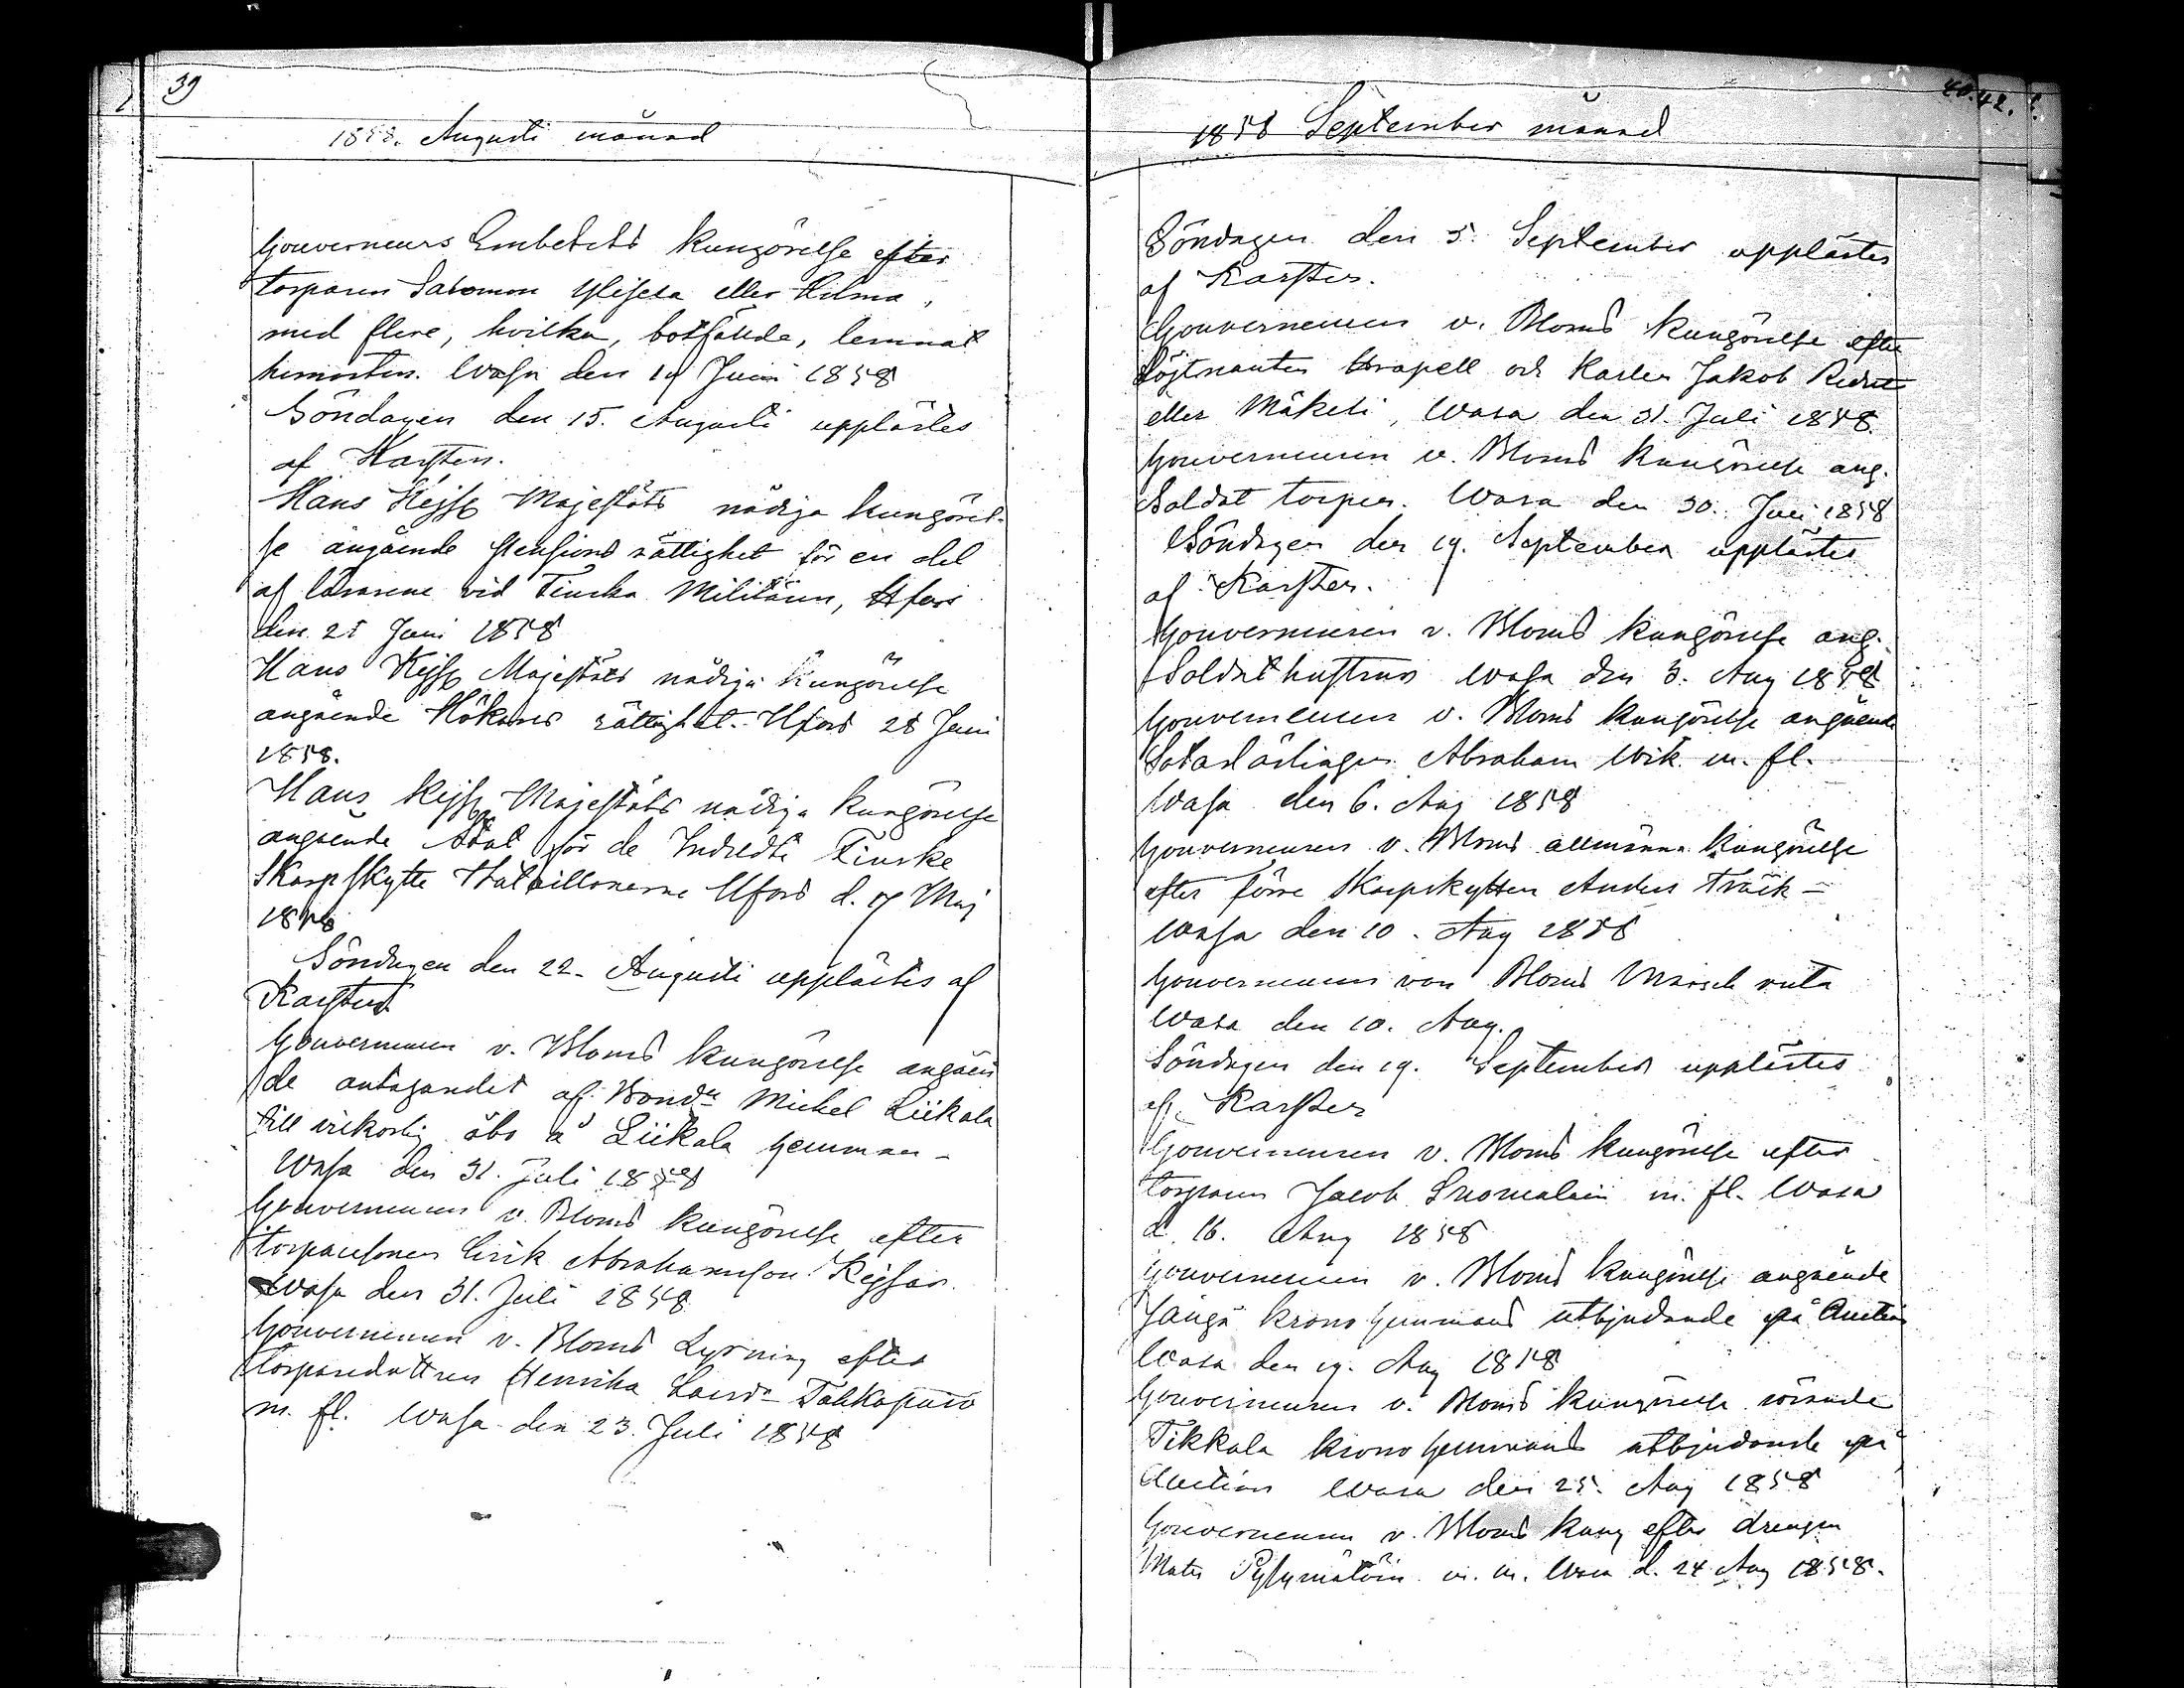 39
1858. Augusti månad
Gouverneurs Embetets kungörelse efter
torparen Salomon Ylisela eller Hilma,
med flere, hvilka, botfällde, lemnat
hemorten. Wasa den 19 Juni 1858
Söndagen den 15. Augusti upplästes
af Karsten.
Hans Kejs Majestäts nådiga kungörel-
se angående Pensions rättighet för en del
af läkarene vid Finska Militären, Hfors
den 21 Juni 1858
Hans Kejs Majestäts nådiga Kungörelse
angående Hökares rättighet. Hfors 28 Juni
1858.
Hans Kejs Majestäts nådiga kungörelse
angående Stat för de Indelta Finske
Skarpskytte Bataillonerne Hfors d. 17 Maj
1858
Söndagen den 22. Augusti upplästes af
Karsten
Gouverneuren v. Bloms kungörelse angåen
de antagandet af Bonden Michel Liikala
till vilkorlig åbo å Liikala hemman -
Wasa den 31. Juli 1858
Gouverneuren v. Bloms kungörelse efter
torparesonen Erik Abrahamsson Kejsar.
Wasa den 31. Juli 1858
Gouverneuren v. Bloms Lysning efter
torparedottren Henrika
m. fl. Wasa den 23. Juli 1858
40.42.
1858 September månad
Söndagen den 5. September upplästes
af Karsten.
Gouverneuren v. Bloms kungörelse efter
Löjtnanten och karlen Jakob
eller Mäkelä, Wasa den 31. Juli 1858.
Gouverneuren v. Bloms kungörelse ang.
Soldat torpen. Wasa den 30. Juli 1858
Söndagen den 19. September upplästes
af Karsten.
Gouverneuren v. Bloms kungörelse ang.
Soldathustrur Wasa den 3. Aug 1858
Gouverneuren v. Bloms kungörelse angående
Abraham Wik m. fl.
Wasa den 6. Aug 1858
Gouverneuren v. Bloms allmänna kungörelse
efter förre Skarpskytten Anders Träsk -
Wasa den 10. Aug 1858
Gouverneuren von Bloms Marsch ruta
Wasa den 10. Aug.
Söndagen den 19. September upplästes
af Karsten
Gouverneuren v. Bloms kungörelse efter
torparen Jacob Suomalain m. fl. Wasa
d. 16. Aug 1858
Gouverneuren v. Bloms kungörelse angående
krono hemmans utbjudande på Auction
Wasa den 19. Aug 1858
Gouverneuren v. Bloms kungörelse rörande
Tikkala krono hemmans utbjudande på
Auction Wasa den 25. Aug 1858
Gouverneuren v. Bloms kung efter drengen
Mats m. m. Wasa d. 24 Aug 1858.